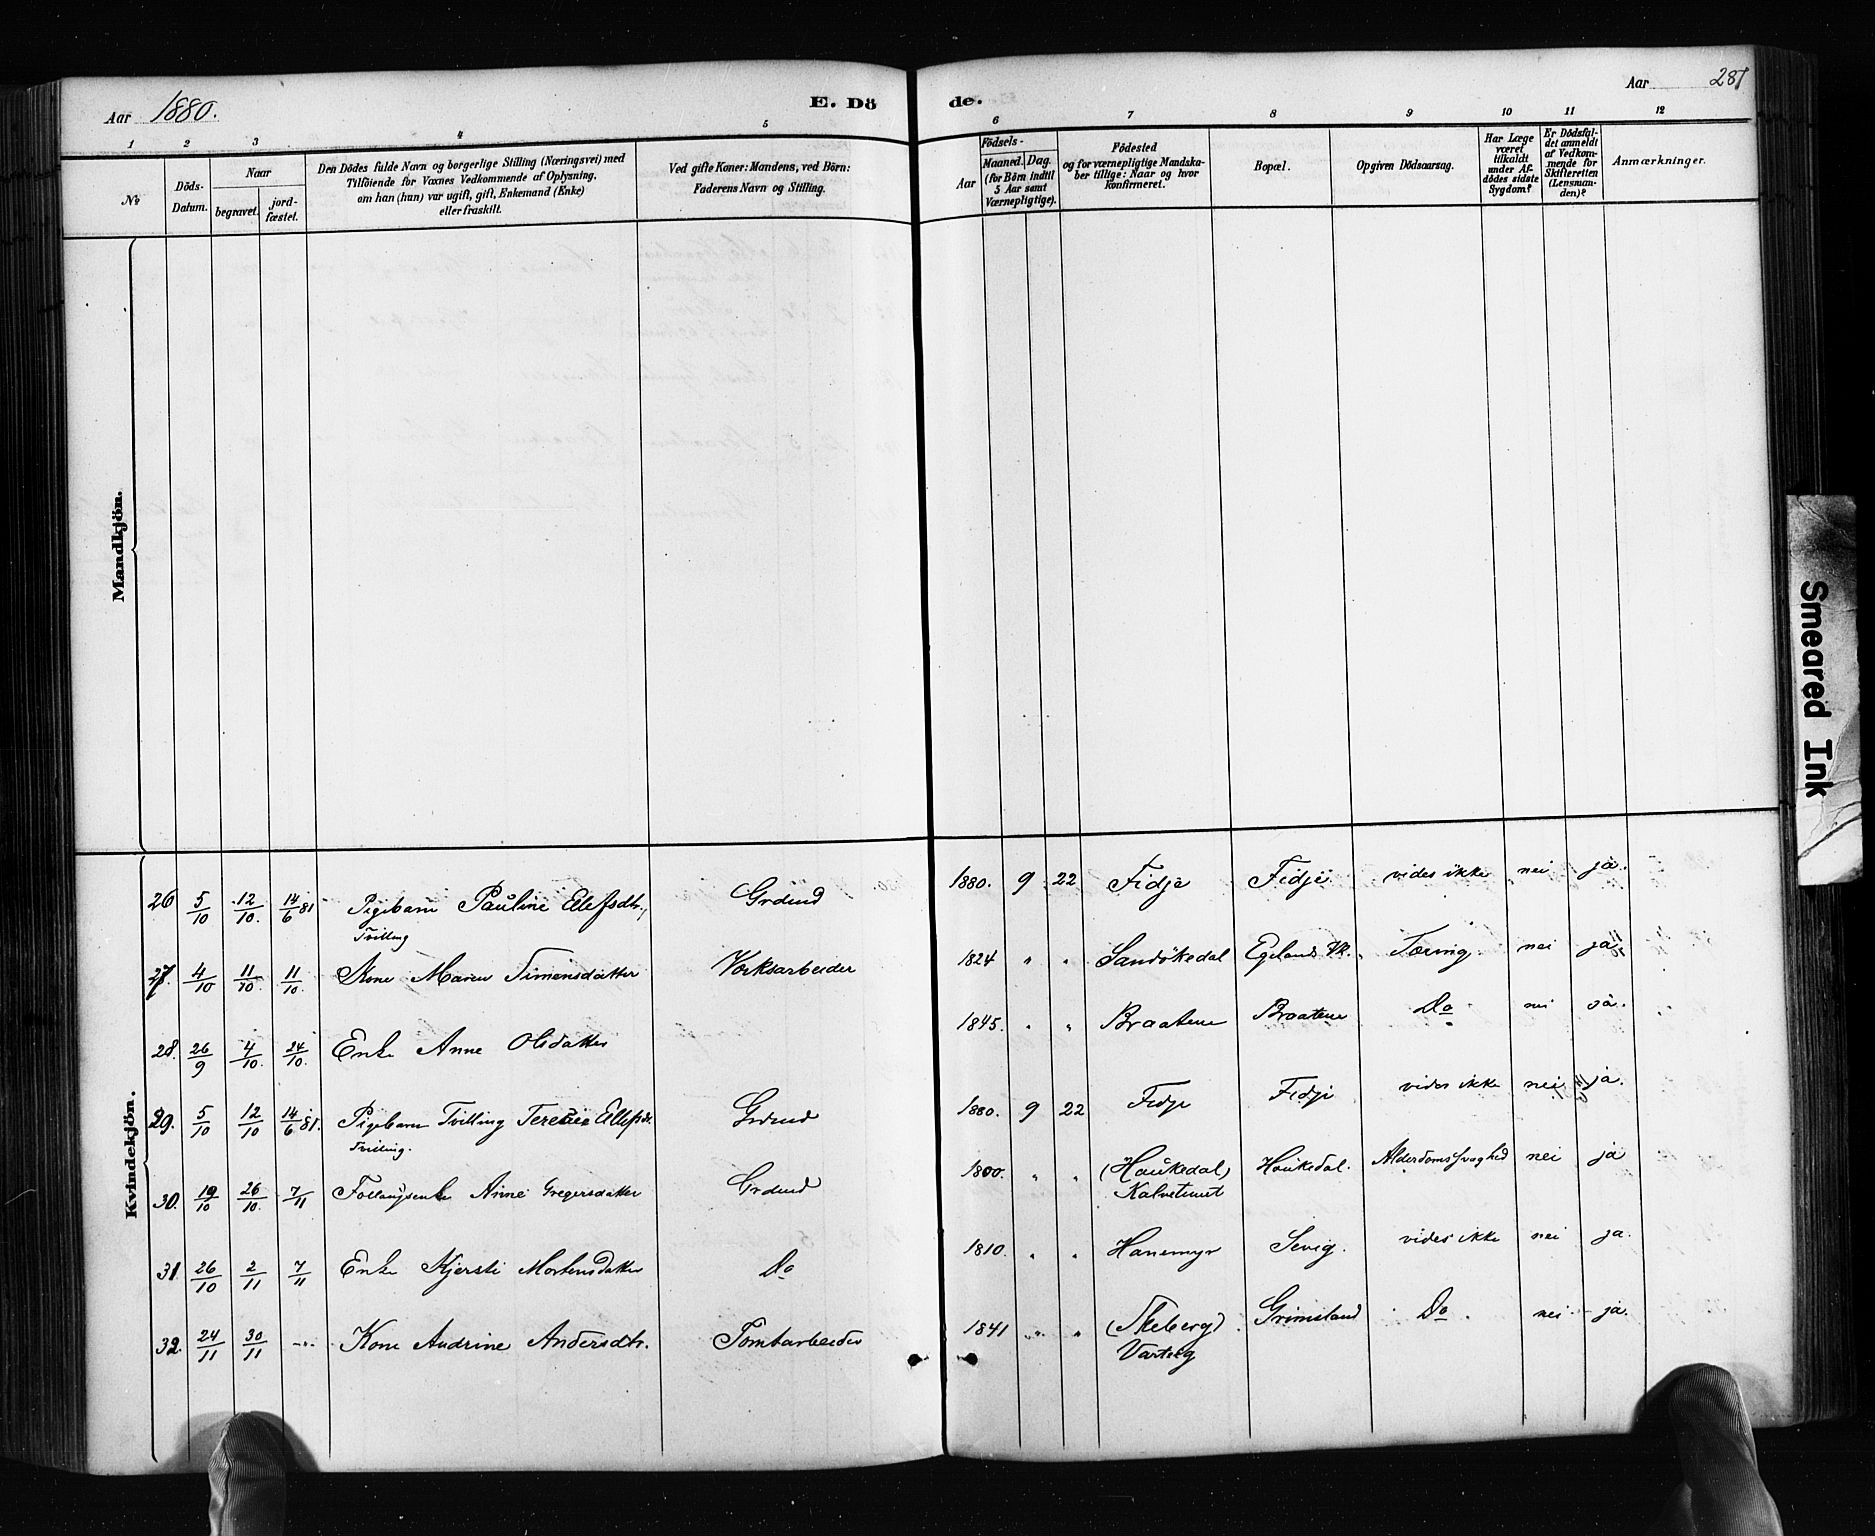 Aar 1880.
E. Dö
de.
Aar 287
1 2 3 4 5 6 7 8 9 10 11 12
No
Döds-
Datum.
Naar
begravet.
jord-
fæstet.
Den Dödes fulde Navn og borgerlige Stilling (Næringsvei) med
Tilföiende for Voxnes Vedkommende af Oplysning,
om han (hun) var ugift, gift, Enkemand (Enke)
eller fraskilt.
Ved gifte Koner: Mandens, ved Börn:
Faderens Navn og Stilling.
Födsels-
Aar
Maaned. Dag.
(for Börn indtil
5 Aar samt
Værnepligtige).
Födested
og for værnepligtige Mandska-
ber tillige: Naar og hvor
konfirmeret.
Bopæl.
Opgiven Dödsaarsag.
Har Læge
været
tilkaldt
under Af-
dödes sidste
Sygdom?
Er Dödsfal-
det anmeldt
af Vedkom-
mende for
Skifteretten
(Lensman-
den)?
Anmærkninger.
Mandkjön.
Kvindekjön.
26 5/10 12/10. 14/6 81 Pigebarn Pauline Ellefsdtr. Grdmd 1880. 9 22 Fidje Fidje vides ikke nei ja.
Tvilling
27. 4/10 11/10. 11/10. Kone Maren Simensdatter Værksarbeider 1824 " " Sandökedal Egelands Vk. Tæring nei ja
28. 26/9 4/10. 24/10. Enke Anne Olsdatter 1845. " " Braatene Braatene Do nei ja.
29. 5/10 12/10 14/6 81. Pigebarn Tvilling Teresie Ellefsdt. Grdmd 1880. 9 22 Fidje Fidje vides ikke nei ja.
Tvilling.
30. 19/10 26/10. 7/11 Anne Gregersdatter Grdmd 1800. " " (Haukedal) Haukedal. Alderdomssvaghed nei ja
31. 26/10 2/11 7/11 Enke Kjersti Mortensdatter Do 1810. " " Hanemyr Sevig. vides ikke nei ja.
32. 24/11 30/11 -"- Kone Andrine Andersdtr. Tomtarbeider 1841 " " (Skeberg) Grimsland Do. nei ja.
Varteig
Smeared Ink